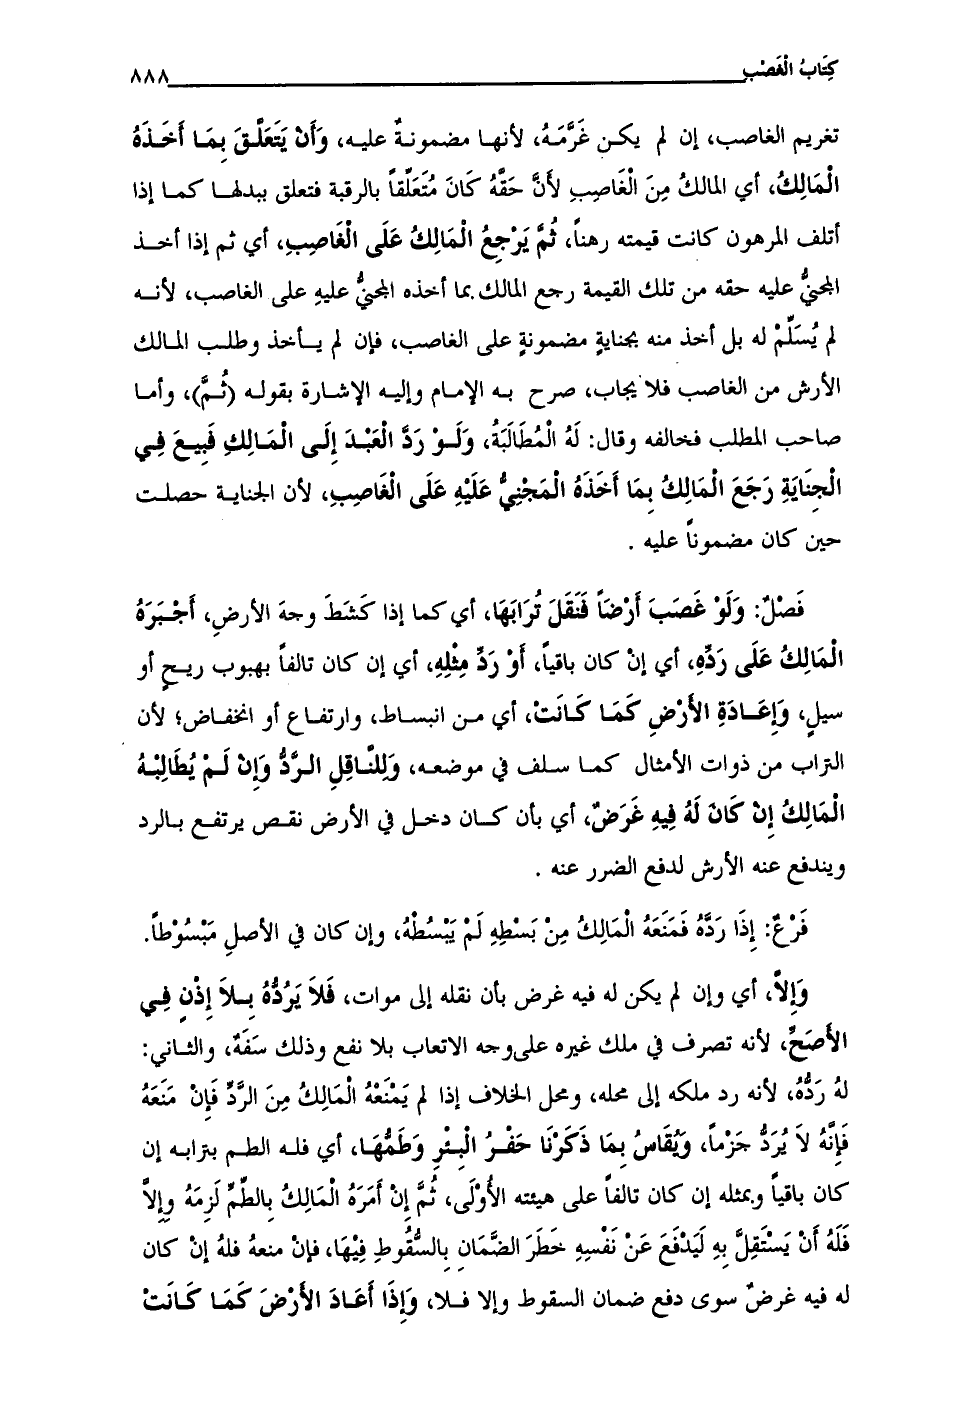 كِتَابُ الْغَصْبِ ٨٨٨
تغريم الغاصب، إن لم يكـن غَرَّمَهُ، لأنهـا مضمونـةٌ عليـه، وَأَنْ يَتَعَلَّـقَ بِمَـا أَخَـذَهُ
الْمَالِكُ، أي المالكُ مِنَ الْغَاصِبِ لأَنَّ حَقَّهُ كَانَ مُتَعَلِّقاً بالرقبة فتعلق ببدلهـا كمـا إذا
أتلف المرهون كانت قيمته رهناً، ثُمَّ يَرْجِعُ الْمَالِكُ عَلَى الْغَاصِبِ، أي ثم إذا أخـذ
المجنيُّ عليه حقه من تلك القيمة رجع المالك بما أخذه المجنيُّ عليهِ على الغاصب، لأنـه
لم يُسَلَّمْ له بل أخذ منه بجنايةٍ مضمونةٍ على الغاصب، فإن لم يـأخذ وطلـب المـالك
الأرش من الغاصب فلا يجاب، صرح به الإمـام وإليـه الإشـارة بقولـه (ثُـمَّ)، وأمـا
صاحب المطلب فخالفه وقال: لَهُ الْمُطَالَبَةُ، وَلَـوْ رَدَّ الْعَبْـدَ إِلَـى الْمَـالِكِ فَبِيـعَ فِـي
الْجِنَايَةِ رَجَعَ الْمَالِكُ بِمَا أَخَذَهُ الْمَجْنِيُّ عَلَيْهِ عَلَى الْغَاصِبِ، لأن الجنايـة حصلـت
حين كان مضموناً عليه .
فَصْلٌ: وَلَوْ غَصَبَ أَرْضاً فَنَقَلَ تُرَابَهَا، أي كما إذا كَشَطَ وجهَ الأرضِ، أَجْـبَرَهُ
الْمَالِكُ عَلَى رَدِّهِ، أي إنْ كان باقياً، أَوْ رَدِّ مِثْلِهِ، أي إن كان تالفاً بهبوب ريـحٍ أو
سيلٍ، وَإِعَـادَةِ الأَرْضِ كَمَـا كَـانَتْ، أي مـن انبسـاط، وارتفـاع أو انخفـاض؛ لأن
التراب من ذوات الأمثال كمـا سلف في موضعـه، وَلِلنَّاقِلِ الـرَّدُّ وَإِنْ لَـمْ يُطَالِبْـهُ
الْمَالِكُ إِنْ كَانَ لَهُ فِيهِ غَرَضٌ، أي بأن كـان دخـل في الأرض نقـص يرتفـع بـالرد
ويندفع عنه الأرش لدفع الضرر عنه .
فَرْعٌ: إِذَا رَدَّهُ فَمَنَعَهُ الْمَالِكُ مِنْ بَسْطِهِ لَمْ يَبْسُطْهُ، وإن كان في الأصلِ مَبْسُوْطاً.
وَإِلاَّ، أي وإن لم يكن له فيه غرض بأن نقله إلى موات، فَلاَ يَرُدُّهُ بِـلاَ إِذْنٍ فِـي
الأَصَحِّ، لأنه تصرف في ملك غيره على وجه الاتعاب بلا نفع وذلك سَفَهٌ، والثـاني:
لهُ رَدُّهُ، لأنه رد ملكه إلى محله، ومحل الخلاف إذا لم يَمْنَعْهُ الْمَالِكُ مِنَ الرَّدِّ فَإِنْ مَنَعَهُ
فَإِنَّهُ لاَ يُرَدُّ جَزْماً، وَيُقَاسُ بِمَا ذَكَرْنَا حَفْـرُ الْبِـئْرِ وَطَمُّهَـا، أي فلـه الطـم بترابـه إن
كان باقياً وبمثله إن كان تالفاً على هيئته الأُوْلَى، ثُمَّ إِنْ أَمَرَهُ الْمَالِكُ بِالطَّمِّ لَزِمَهُ وإلاَّ
فَلَهُ أَنْ يَسْتَقِلَّ بِهِ لَيَدْفَعَ عَنْ نَفْسِهِ خَطَرَ الضَّمَانِ بِالسُّقُوطِ فِيْهَا، فإنْ منعهُ فلهُ إنْ كان
له فيه غرضٌ سوى دفع ضمان السقوط وإلا فـلا، وَإِذَا أَعَـادَ الأَرْضَ كَمَـا كَـانَتْ